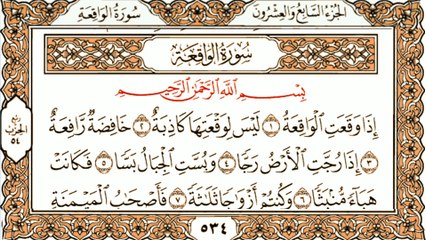 سُورَةُ الوَاقِعَةِ
الجُزءُ السَّابِعُ وَالعِشْرُونَ
سُورَةُ الوَاقِعَةِ
بِسْمِ اللَّهِ الرَّحْمَٰنِ الرَّحِيمِ
إِذَا وَقَعَتِ الْوَاقِعَةُ ١ لَيْسَ لِوَقْعَتِهَا كَاذِبَةٌ ٢ خَافِضَةٌ رَّافِعَةٌ
٣ إِذَا رُجَّتِ الْأَرْضُ رَجًّا ٤ وَبُسَّتِ الْجِبَالُ بَسًّا ٥ فَكَانَتْ
هَبَاءً مُّنۢبَثًّا ٦ وَكُنتُمْ أَزْوَاجًا ثَلَاثَةً ٧ فَأَصْحَابُ الْمَيْمَنَةِ
ربع
الحزب
٥٤
٥٣٤